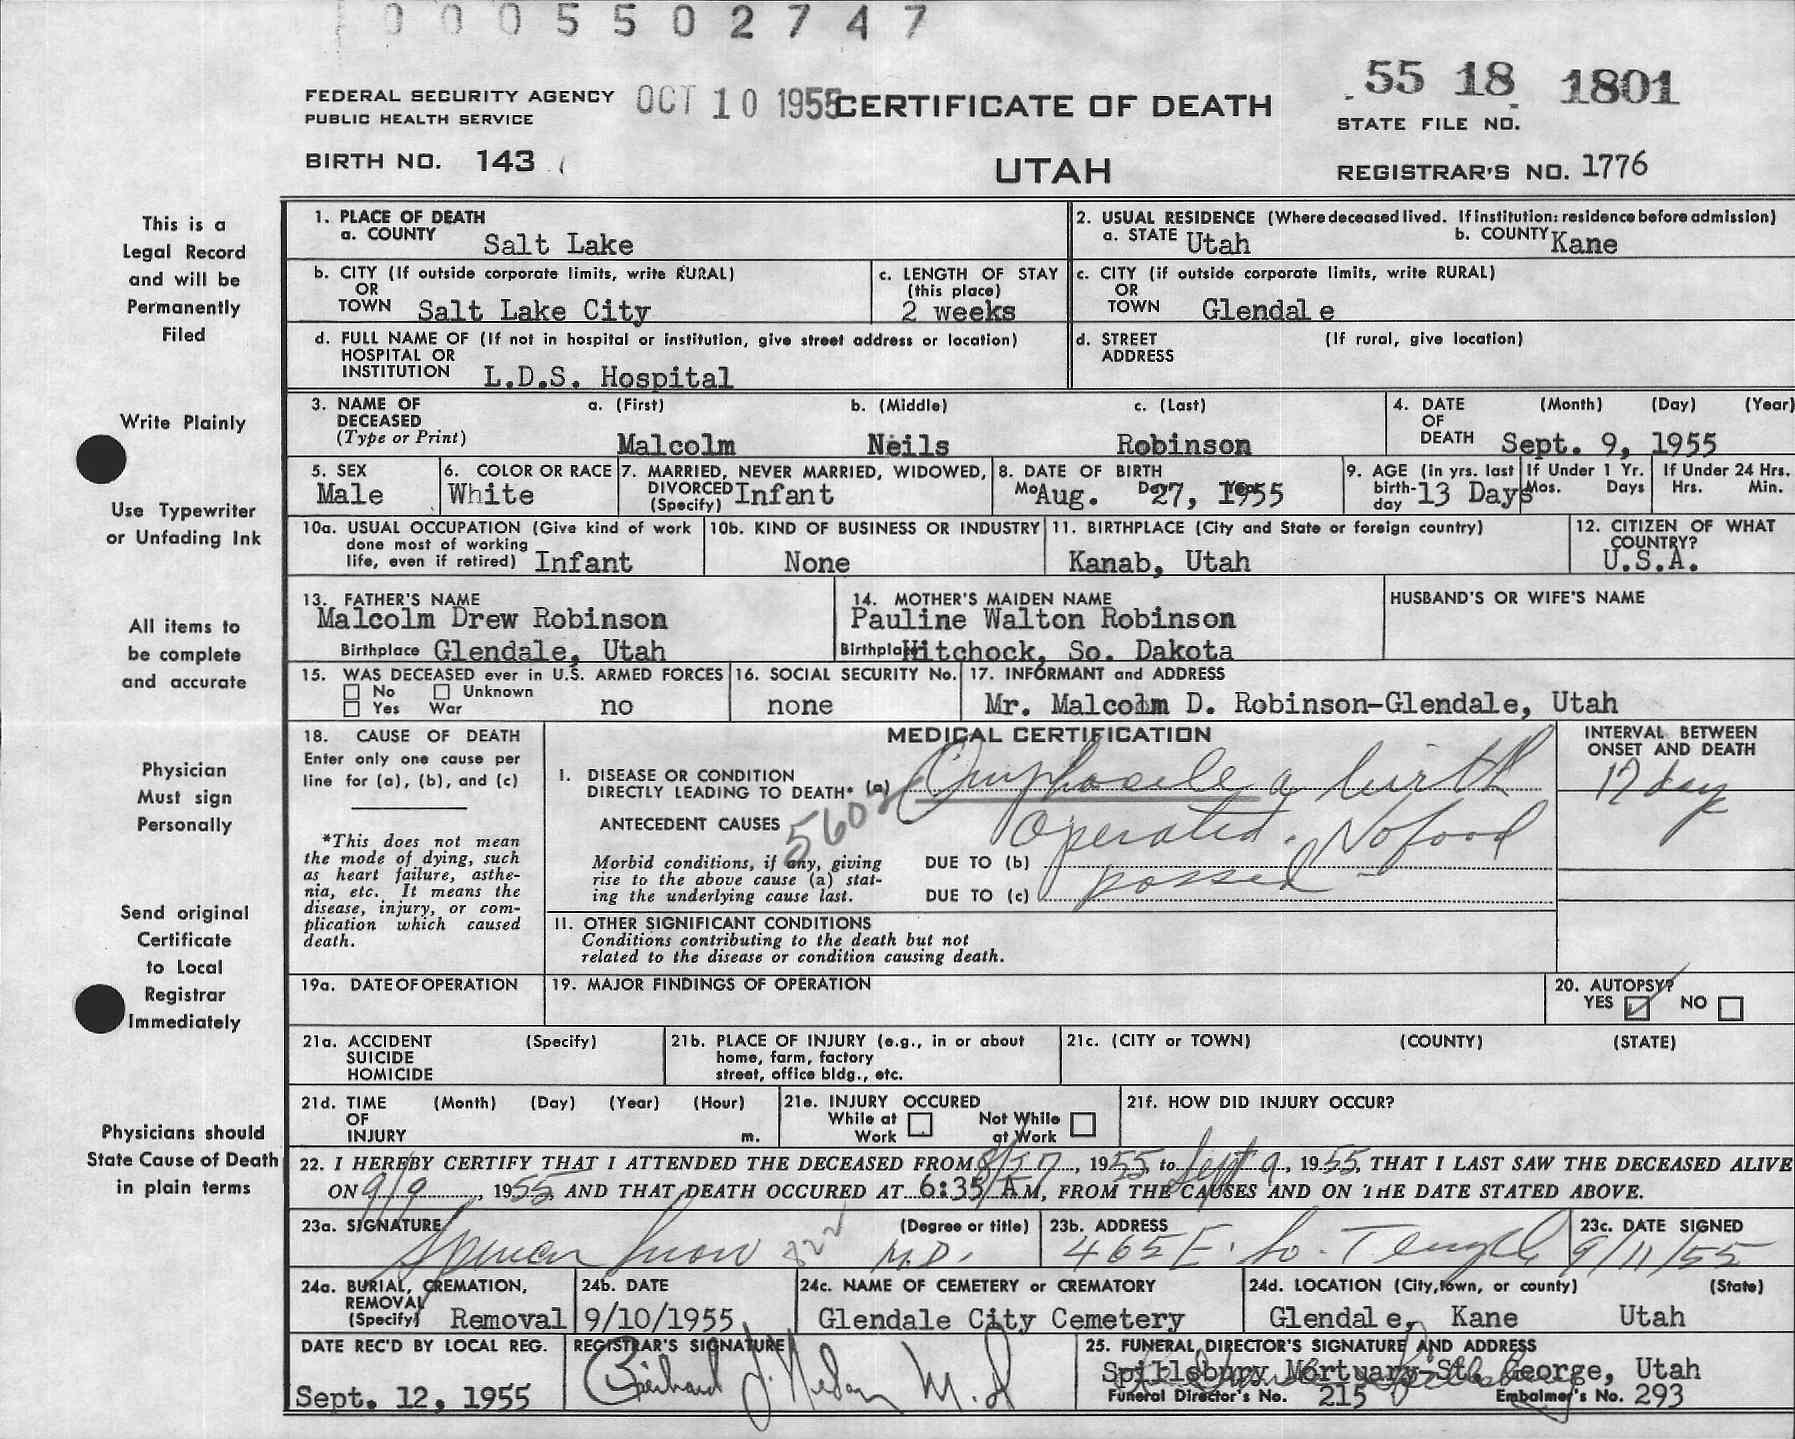 0 0 0 5 5 0 2 7 4 7
FEDERAL SECURITY AGENCY
PUBLIC HEALTH SERVICE
OCT 10 1955
CERTIFICATE OF DEATH
55 18 1801
STATE FILE NO.
BIRTH NO. 143
UTAH
REGISTRAR'S NO. 1776
This is a
Legal Record
and will be
Permanently
Filed
Write Plainly
Use Typewriter
or Unfading Ink
All items to
be complete
and accurate
Physician
Must sign
Personally
Send original
Certificate
to Local
Registrar
Immediately
Physicians should
State Cause of Death
in plain terms
1. PLACE OF DEATH
a. COUNTY Salt Lake
2. USUAL RESIDENCE (Where deceased lived. If institution: residence before admission)
a. STATE Utah b. COUNTY Kane
b. CITY (If outside corporate limits, write RURAL)
OR
TOWN Salt Lake City
c. LENGTH OF STAY
(this place)
2 weeks
c. CITY (if outside corporate limits, write RURAL)
OR
TOWN Glendale
d. FULL NAME OF (If not in hospital or institution, give street address or location)
HOSPITAL OR
INSTITUTION L.D.S. Hospital
d. STREET (If rural, give location)
ADDRESS
3. NAME OF DECEASED (Type or Print)
a. (First) b. (Middle) c. (Last)
Malcolm Neils Robinson
4. DATE OF DEATH (Month) (Day) (Year)
Sept. 9, 1955
5. SEX
Male
6. COLOR OR RACE
White
7. MARRIED, NEVER MARRIED, WIDOWED,
DIVORCED (Specify) Infant
8. DATE OF BIRTH
Mo. Aug. 27, 1955
9. AGE (in yrs. last birth-day 13 Days
If Under 1 Yr.
Mos. Days
If Under 24 Hrs.
Hrs. Min.
10a. USUAL OCCUPATION (Give kind of work
done most of working
life, even if retired) Infant
10b. KIND OF BUSINESS OR INDUSTRY
None
11. BIRTHPLACE (City and State or foreign country)
Kanab, Utah
12. CITIZEN OF WHAT
COUNTRY?
U.S.A.
13. FATHER'S NAME
Malcolm Drew Robinson
Birthplace Glendale, Utah
14. MOTHER'S MAIDEN NAME
Pauline Walton Robinson
Birthpla Hitchock, So. Dakota
HUSBAND'S OR WIFE'S NAME
15. WAS DECEASED ever in U.S. ARMED FORCES
No Unknown
Yes War no
16. SOCIAL SECURITY No.
none
17. INFORMANT and ADDRESS
Mr. Malcolm D. Robinson-Glendale, Utah
18. CAUSE OF DEATH
Enter only one cause per
line for (a), (b), and (c)
*This does not mean
the mode of dying, such
as heart failure, asthe-
nia, etc. It means the
disease, injury, or com-
plication which caused
death.
MEDICAL CERTIFICATION
INTERVAL BETWEEN
ONSET AND DEATH
I. DISEASE OR CONDITION
DIRECTLY LEADING TO DEATH* (a) Omphocele a birth
5602
ANTECEDENT CAUSES
Operated. No food
Morbid conditions, if any, giving
rise to the above cause (a) stat-
ing the underlying cause last.
DUE TO (b)
DUE TO (c)
passed
II. OTHER SIGNIFICANT CONDITIONS
Conditions contributing to the death but not
related to the disease or condition causing death.
19a. DATE OF OPERATION
19. MAJOR FINDINGS OF OPERATION
20. AUTOPSY?
YES NO
21a. ACCIDENT (Specify)
SUICIDE
HOMICIDE
21b. PLACE OF INJURY (e.g., in or about
home, farm, factory
street, office bldg., etc.
21c. (CITY or TOWN) (COUNTY) (STATE)
21d. TIME (Month) (Day) (Year) (Hour)
OF
INJURY m.
21e. INJURY OCCURED
While at Work Not While at Work
21f. HOW DID INJURY OCCUR?
22. I HEREBY CERTIFY THAT I ATTENDED THE DECEASED FROM 8/27, 1955, to Sept 9, 1955, THAT I LAST SAW THE DECEASED ALIVE
ON 9/9, 1955, AND THAT DEATH OCCURED AT 6:35 A M, FROM THE CAUSES AND ON THE DATE STATED ABOVE.
23a. SIGNATURE (Degree or title)
Spencer Snow M.D.
23b. ADDRESS
465 E. So. Temple
23c. DATE SIGNED
9/11/55
24a. BURIAL, CREMATION,
REMOVAL
(Specify) Removal
24b. DATE
9/10/1955
24c. NAME OF CEMETERY or CREMATORY
Glendale City Cemetery
24d. LOCATION (City, town, or county) (State)
Glendale, Kane Utah
DATE REC'D BY LOCAL REG.
Sept. 12, 1955
REGISTRAR'S SIGNATURE
25. FUNERAL DIRECTOR'S SIGNATURE AND ADDRESS
Spillsbury Mortuary-St. George, Utah
Funeral Director's No. 215 Embalmer's No. 293